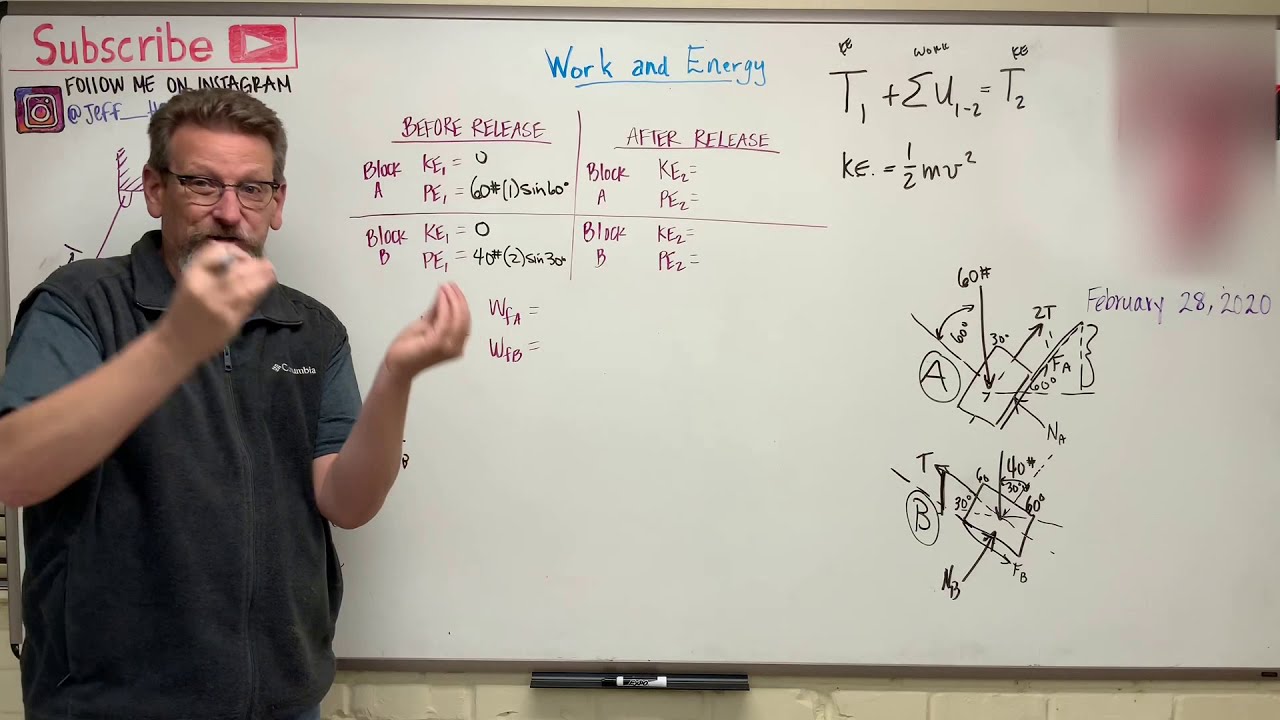 Subscribe
FOLLOW ME ON INSTAGRAM
@Jeff_
Work and Energy
KE WORK KE
T₁ + ΣU₁₋₂ = T₂
KE. = 1/2 mv²
BEFORE RELEASE
AFTER RELEASE
Block A KE₁ = 0
PE₁ = 60#(1)sin60°
Block A KE₂=
PE₂=
Block B KE₁ = 0
PE₁ = 40#(2)sin30°
Block B KE₂=
PE₂=
WfA =
WfB =
February 28, 2020
60#
60°
30°
2T
A
FA
60°
NA
T
40#
60
30°
30°
60°
B
FB
NB
B
Columbia
EXPO